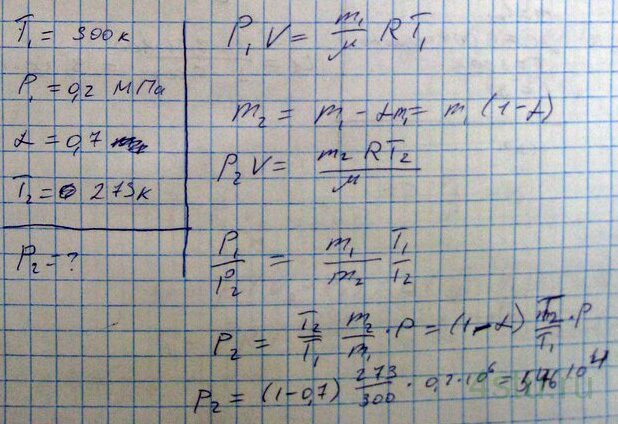 T₁ = 300к
P₁ = 0,2 МПа
α = 0,7
T₂ = 273к
P₂ = ?
P₁ V = m₁/μ RT₁
m₂ = m₁ - αm₁ = m₁ (1-α)
P₂ V = m₂ RT₂/μ
P₁/P₂ = m₁/m₂ T₁/T₂
P₂ = T₂/T₁ m₂/m₁ · P = (1-α) T₂/T₁ · P
P₂ = (1-0,7) 273/300 · 0,2·10⁶ = 5,46 10⁴